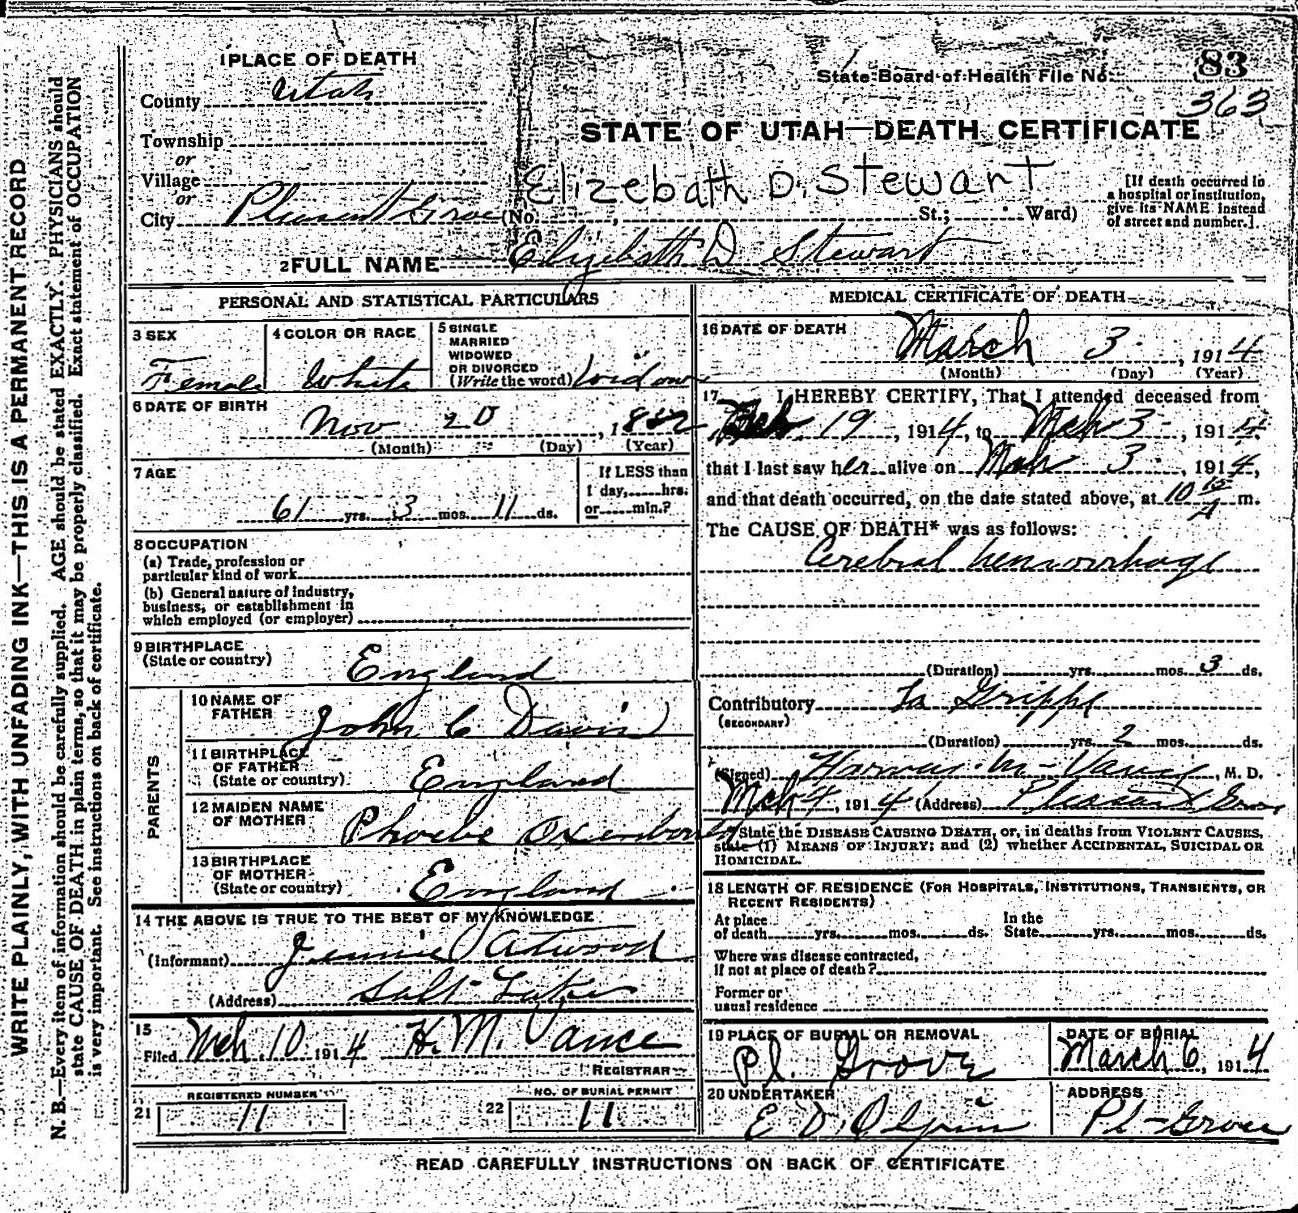 WRITE PLAINLY, WITH UNFADING INK—THIS IS A PERMANENT RECORD
N. B.—Every item of information should be carefully supplied. AGE should be stated EXACTLY. PHYSICIANS should
state CAUSE OF DEATH in plain terms, so that it may be properly classified. Exact statement of OCCUPATION
is very important. See instructions on back of certificate.
1 PLACE OF DEATH
County Utah
Township
or
Village
or
City Pleasant Grove (No. , St.; Ward)
State Board of Health File No. 83
363
STATE OF UTAH—DEATH CERTIFICATE
Elizebath D. Stewart
[If death occurred in
a hospital or institution,
give its NAME instead
of street and number.]
2 FULL NAME Elizebath D Stewart
PERSONAL AND STATISTICAL PARTICULARS
3 SEX
Female
4 COLOR OR RACE
White
5 SINGLE
MARRIED
WIDOWED
OR DIVORCED
(Write the word) Widow
6 DATE OF BIRTH
Nov 20, 1852
(Month) (Day) (Year)
7 AGE
61 yrs. 3 mos. 11 ds.
If LESS than
1 day, hrs.
or min.?
8 OCCUPATION
(a) Trade, profession or
particular kind of work
(b) General nature of industry,
business, or establishment in
which employed (or employer)
9 BIRTHPLACE
(State or country)
England
PARENTS
10 NAME OF
FATHER
John C Davis
11 BIRTHPLACE
OF FATHER
(State or country)
England
12 MAIDEN NAME
OF MOTHER
Phoebe
13 BIRTHPLACE
OF MOTHER
(State or country)
England
14 THE ABOVE IS TRUE TO THE BEST OF MY KNOWLEDGE
(Informant) Jennie Atwood
(Address) Salt Lake
15
Filed Mch 10 1914 H. M. Vance
REGISTRAR
21
REGISTERED NUMBER
11
22
NO. OF BURIAL PERMIT
11
MEDICAL CERTIFICATE OF DEATH
16 DATE OF DEATH
March 3, 1914
(Month) (Day) (Year)
17 I HEREBY CERTIFY, That I attended deceased from
Feb 19, 1914, to Mch 3, 1914,
that I last saw her alive on Mch 3, 1914,
and that death occurred, on the date stated above, at 10 A m.
The CAUSE OF DEATH* was as follows:
Cerebral hemorrhage
(Duration) yrs. mos. 3 ds.
Contributory La Grippe
(SECONDARY)
(Duration) yrs. 2 mos. ds.
(Signed) M. Vance, M. D.
Mch 4, 1914 (Address) Pleasant Grove
* State the DISEASE CAUSING DEATH, or, in deaths from VIOLENT CAUSES,
state (1) MEANS OF INJURY; and (2) whether ACCIDENTAL, SUICIDAL OR
HOMICIDAL.
18 LENGTH OF RESIDENCE (FOR HOSPITALS, INSTITUTIONS, TRANSIENTS, OR
RECENT RESIDENTS)
At place
of death yrs. mos. ds.
In the
State yrs. mos. ds.
Where was disease contracted,
if not at place of death?
Former or
usual residence
19 PLACE OF BURIAL OR REMOVAL
Pl. Grove
DATE OF BURIAL
March 6, 1914
20 UNDERTAKER
E D Olpin
ADDRESS
Pl-Grove
READ CAREFULLY INSTRUCTIONS ON BACK OF CERTIFICATE